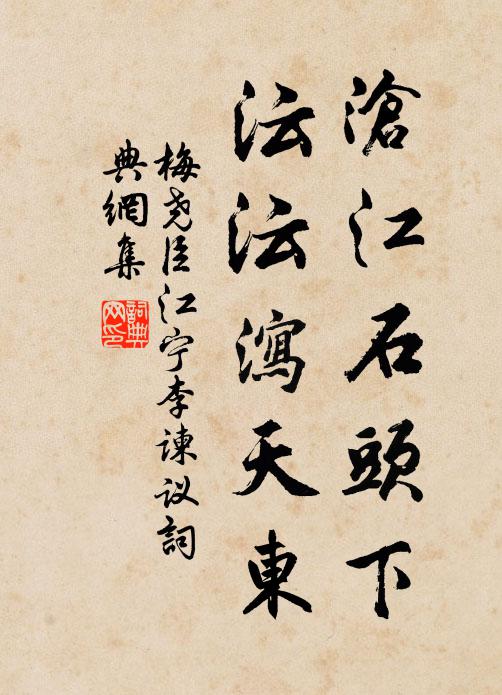 滄江石頭下
沄沄瀉天東
梅尧臣江宁李谏议詞
典網集
詞典網印